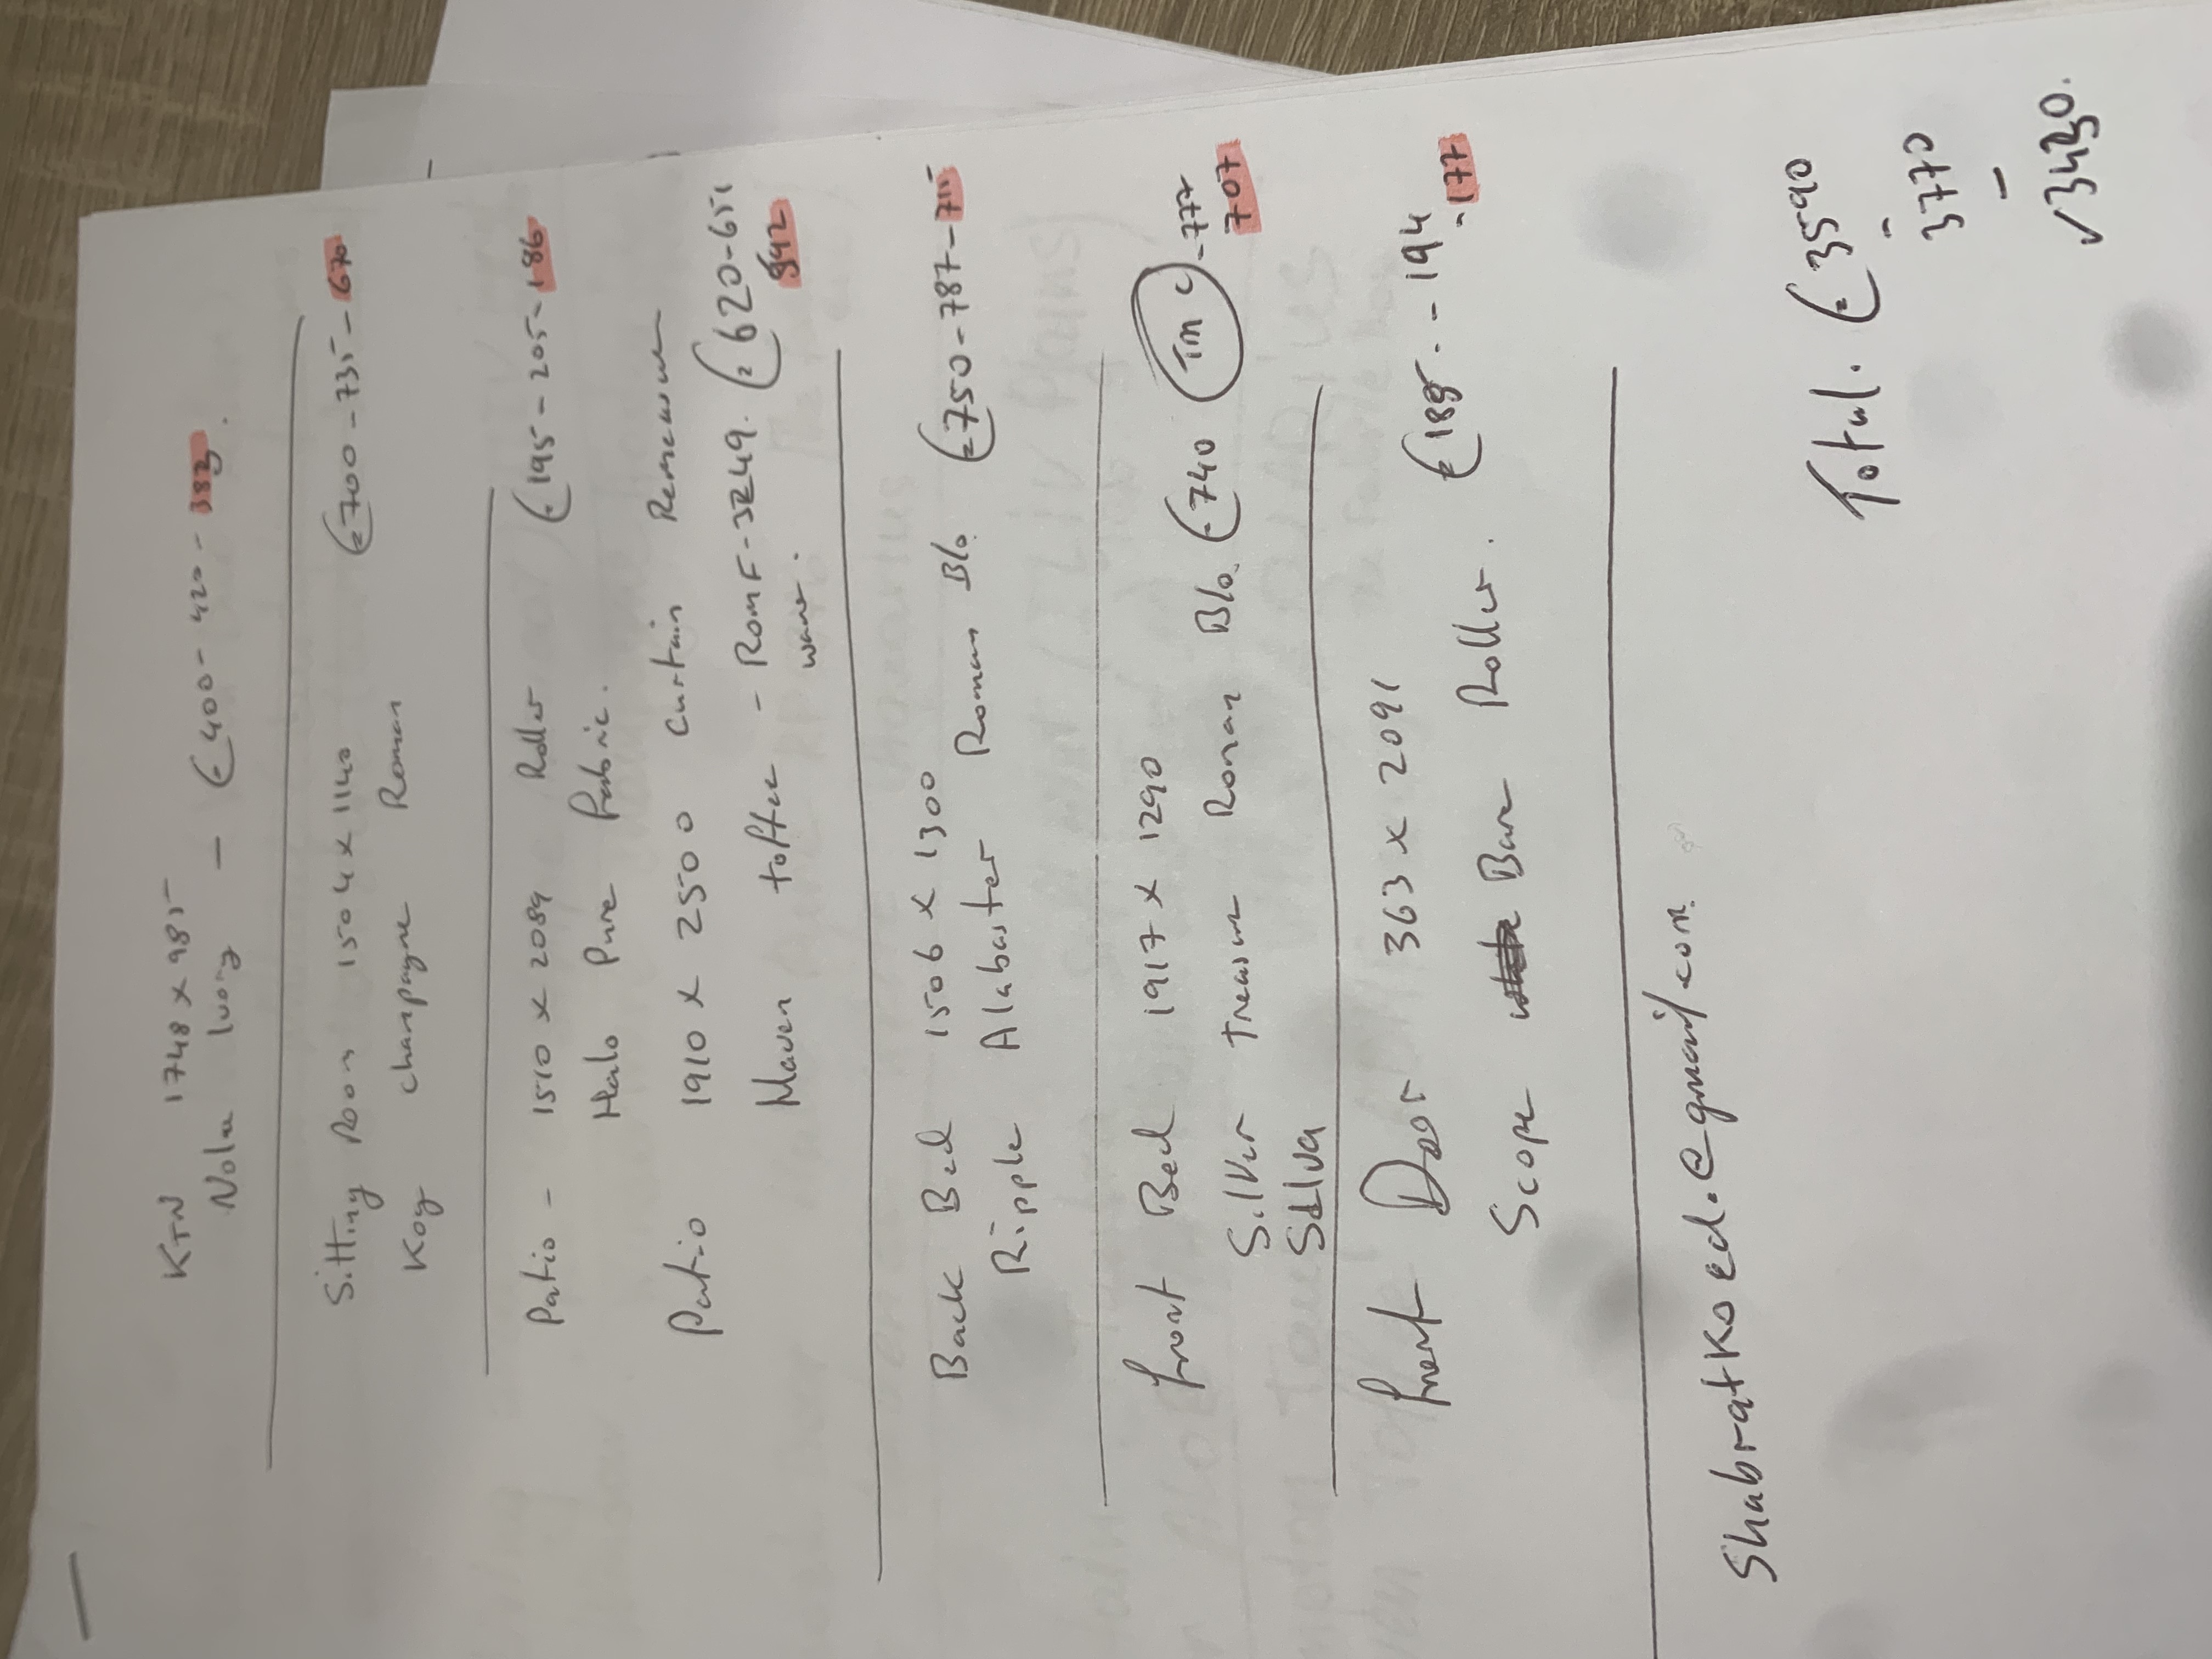 KTN 1748 x 985
Nola Ivory - € 400 - 420 - 382.
Sitting Room 1504 x 1140 € 700 - 735 - 670
Koy champagne Roman
Patio - 1510 x 2089 Roller € 195 - 205 - 186
Halo Pure fabric.
Patio 1910 x 2550 curtain Remeasure
Maven toffee - Romf - 3249. € 620 - 651
wave. 592
Back Bed 1506 x 1300
Ripple Alabaster Roman B/o. € 750 - 787 - 715
front Bed 1917 x 1290
Silver treasure Roman B/o. € 740 Tm c - 777
Salva 707
front Door 363 x 2091
Scope Bare Roller. € 185. - 194
- 177
Shabratkoed.@gmail.com.
Total. € 3590
-
3770
-
✓ 3430.